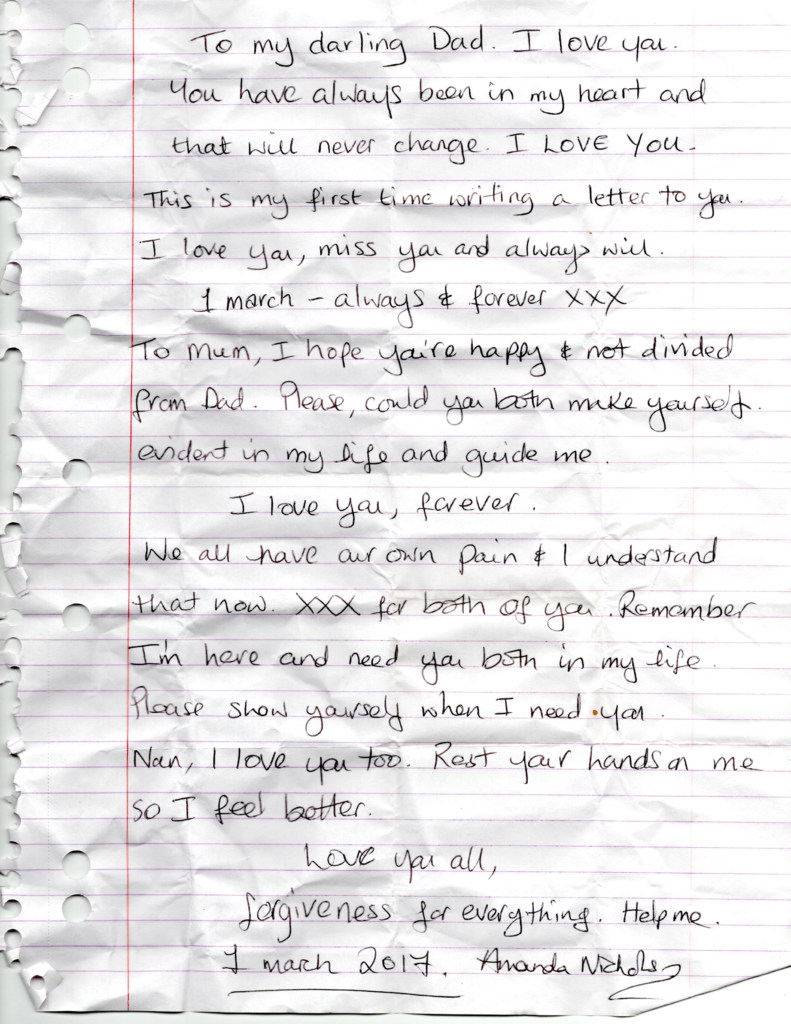 To my darling Dad. I love you.
You have always been in my heart and
that will never change. I LOVE YOU.
This is my first time writing a letter to you.
I love you, miss you and always will.
1 march – always & forever XXX
To Mum, I hope you're happy & not divided
from Dad. Please, could you both make yourself
evident in my life and guide me.
I love you, forever.
We all have our own pain & I understand
that now. XXX for both of you. Remember
I'm here and need you both in my life.
Please show yourself when I need you.
Nan, I love you too. Rest your hands on me
so I feel better.
Love you all,
forgiveness for everything. Help me.
1 march 2017. Amanda Nichols